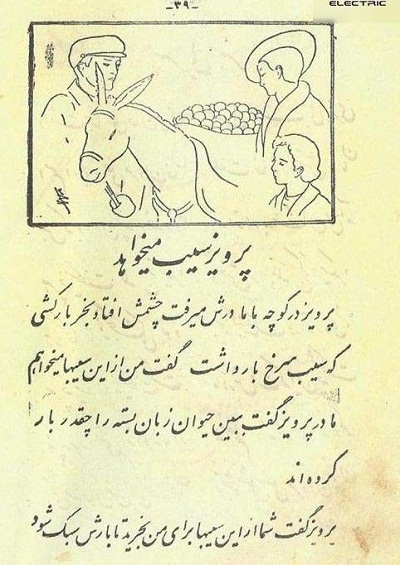 ELECTRIC
-۳۹-
پرویز سیب میخواهد
پرویز در کوچه با مادرش میرفت چشمش افتاد بخر بارکشی
که سیب سرخ بار داشت گفت من از این سیبها میخواهم
مادر پرویز گفت ببین حیوان زبان بسته را چقدر بار
کرده اند
پرویز گفت شما از این سیبها برای من بخرید تا بارش سبک شود